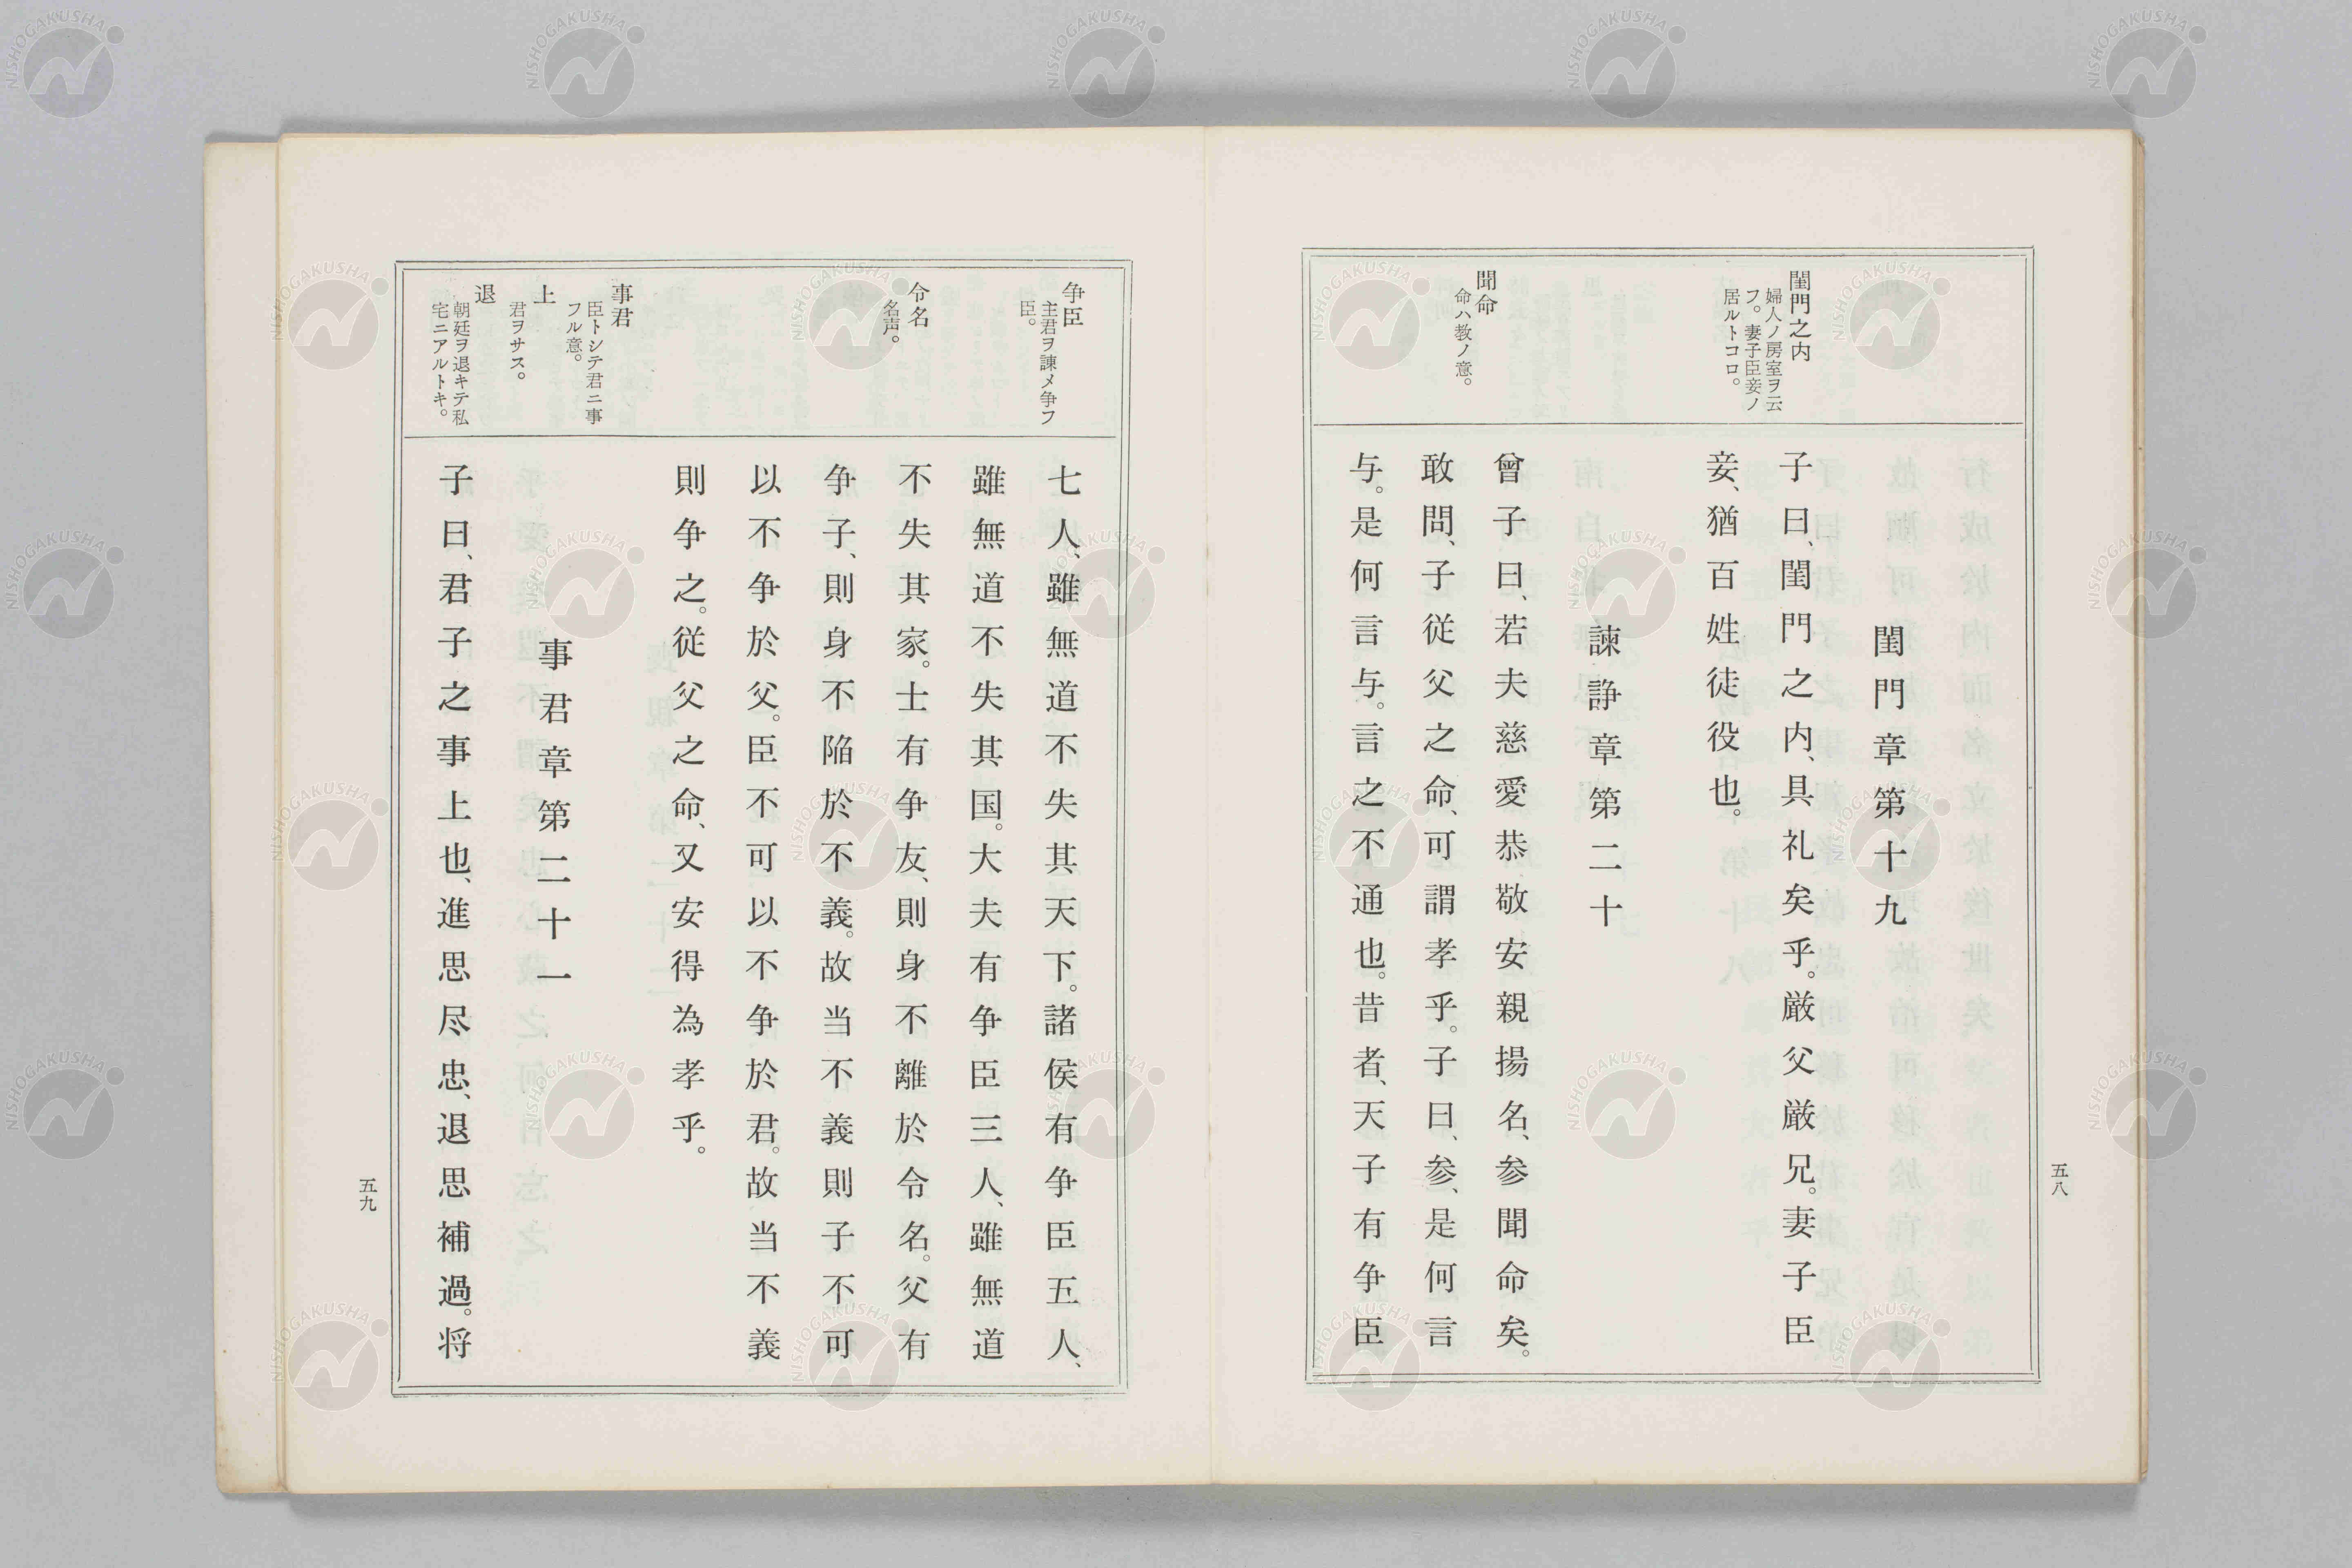 閨門之内
婦人ノ房室ヲ云
フ。妻子臣妾ノ
居ルトコロ。
聞命
命ハ教ノ意。
閨門章第十九
子曰、閨門之内、具礼矣乎。厳父厳兄。妻子臣
妾、猶百姓徒役也。
諫諍章第二十
曾子曰、若夫慈愛恭敬安親揚名、参聞命矣。
敢問、子従父之命、可謂孝乎。子曰、参、是何言
与。是何言与。言之不通也。昔者、天子有争臣
五八
争臣
主君ヲ諫メ争フ
臣。
令名
名声。
事君
臣トシテ君ニ事
フル意。
上
君ヲサス。
退
朝廷ヲ退キテ私
宅ニアルトキ。
七人、雖無道不失其天下。諸侯有争臣五人、
雖無道不失其国。大夫有争臣三人、雖無道
不失其家。士有争友、則身不離於令名。父有
争子、則身不陥於不義。故当不義則子不可
以不争於父。臣不可以不争於君。故当不義
則争之。従父之命、又安得為孝乎。
事君章第二十一
子曰、君子之事上也、進思尽忠、退思補過。将
五九
NISHOGAKUSHA